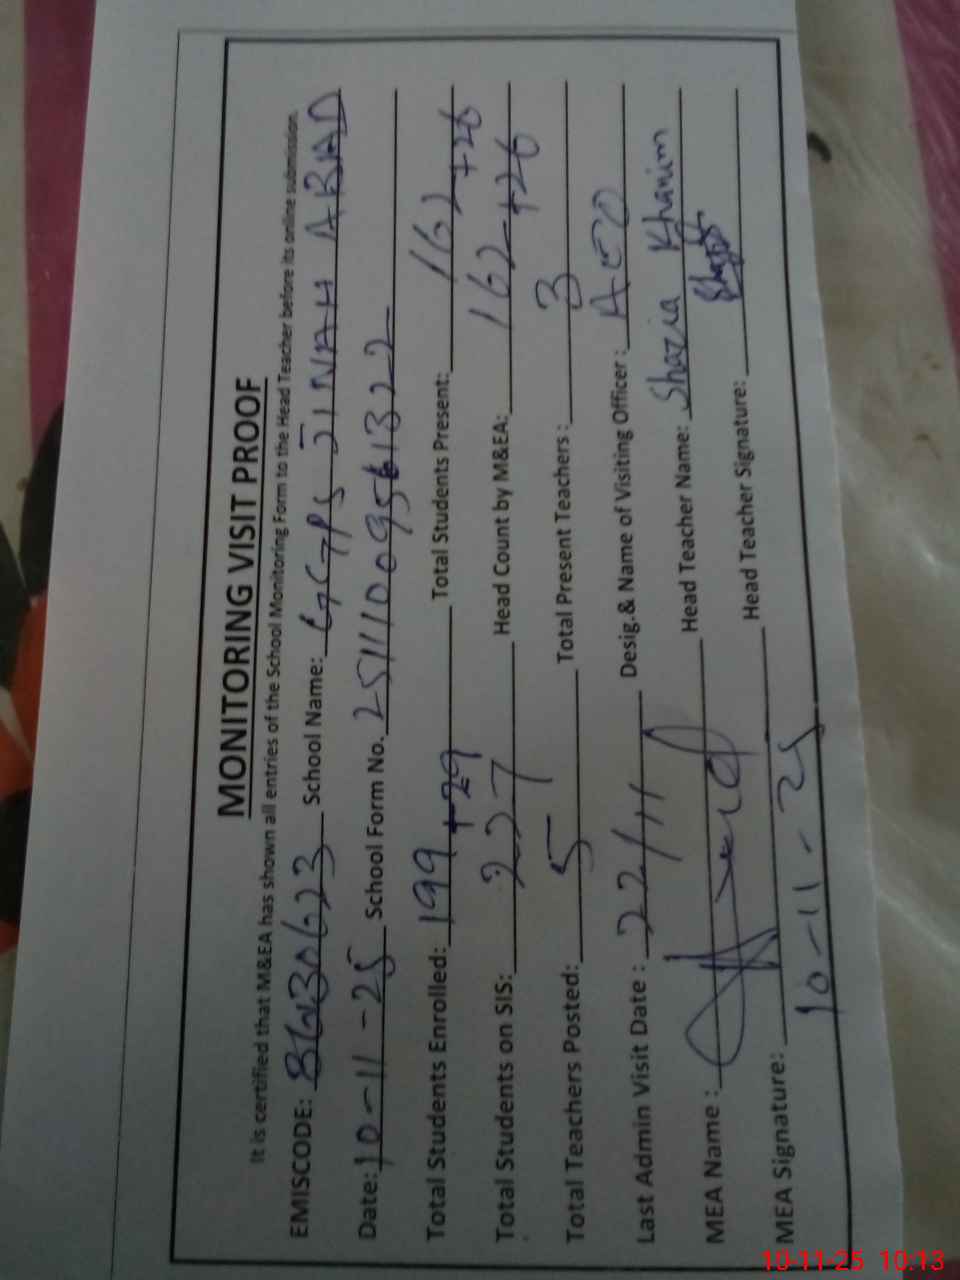 MONITORING VISIT PROOF
It is certified that M&EA has shown all entries of the School Monitoring Form to the Head Teacher before its online submission.
EMISCODE: School Name: GGPS JINAH ABAD
Date: 10-11-25 School Form No. 
Total Students Enrolled: 199 +29 Total Students Present: 162 +26
Total Students on SIS: 227 Head Count by M&EA: 162 +26
Total Teachers Posted: 5 Total Present Teachers : 3
Last Admin Visit Date : 22/11 Desig.& Name of Visiting Officer : AEO
MEA Name : Head Teacher Name: Shazia Khanim
MEA Signature: Head Teacher Signature:
10-11-25
10-11-25 10:13